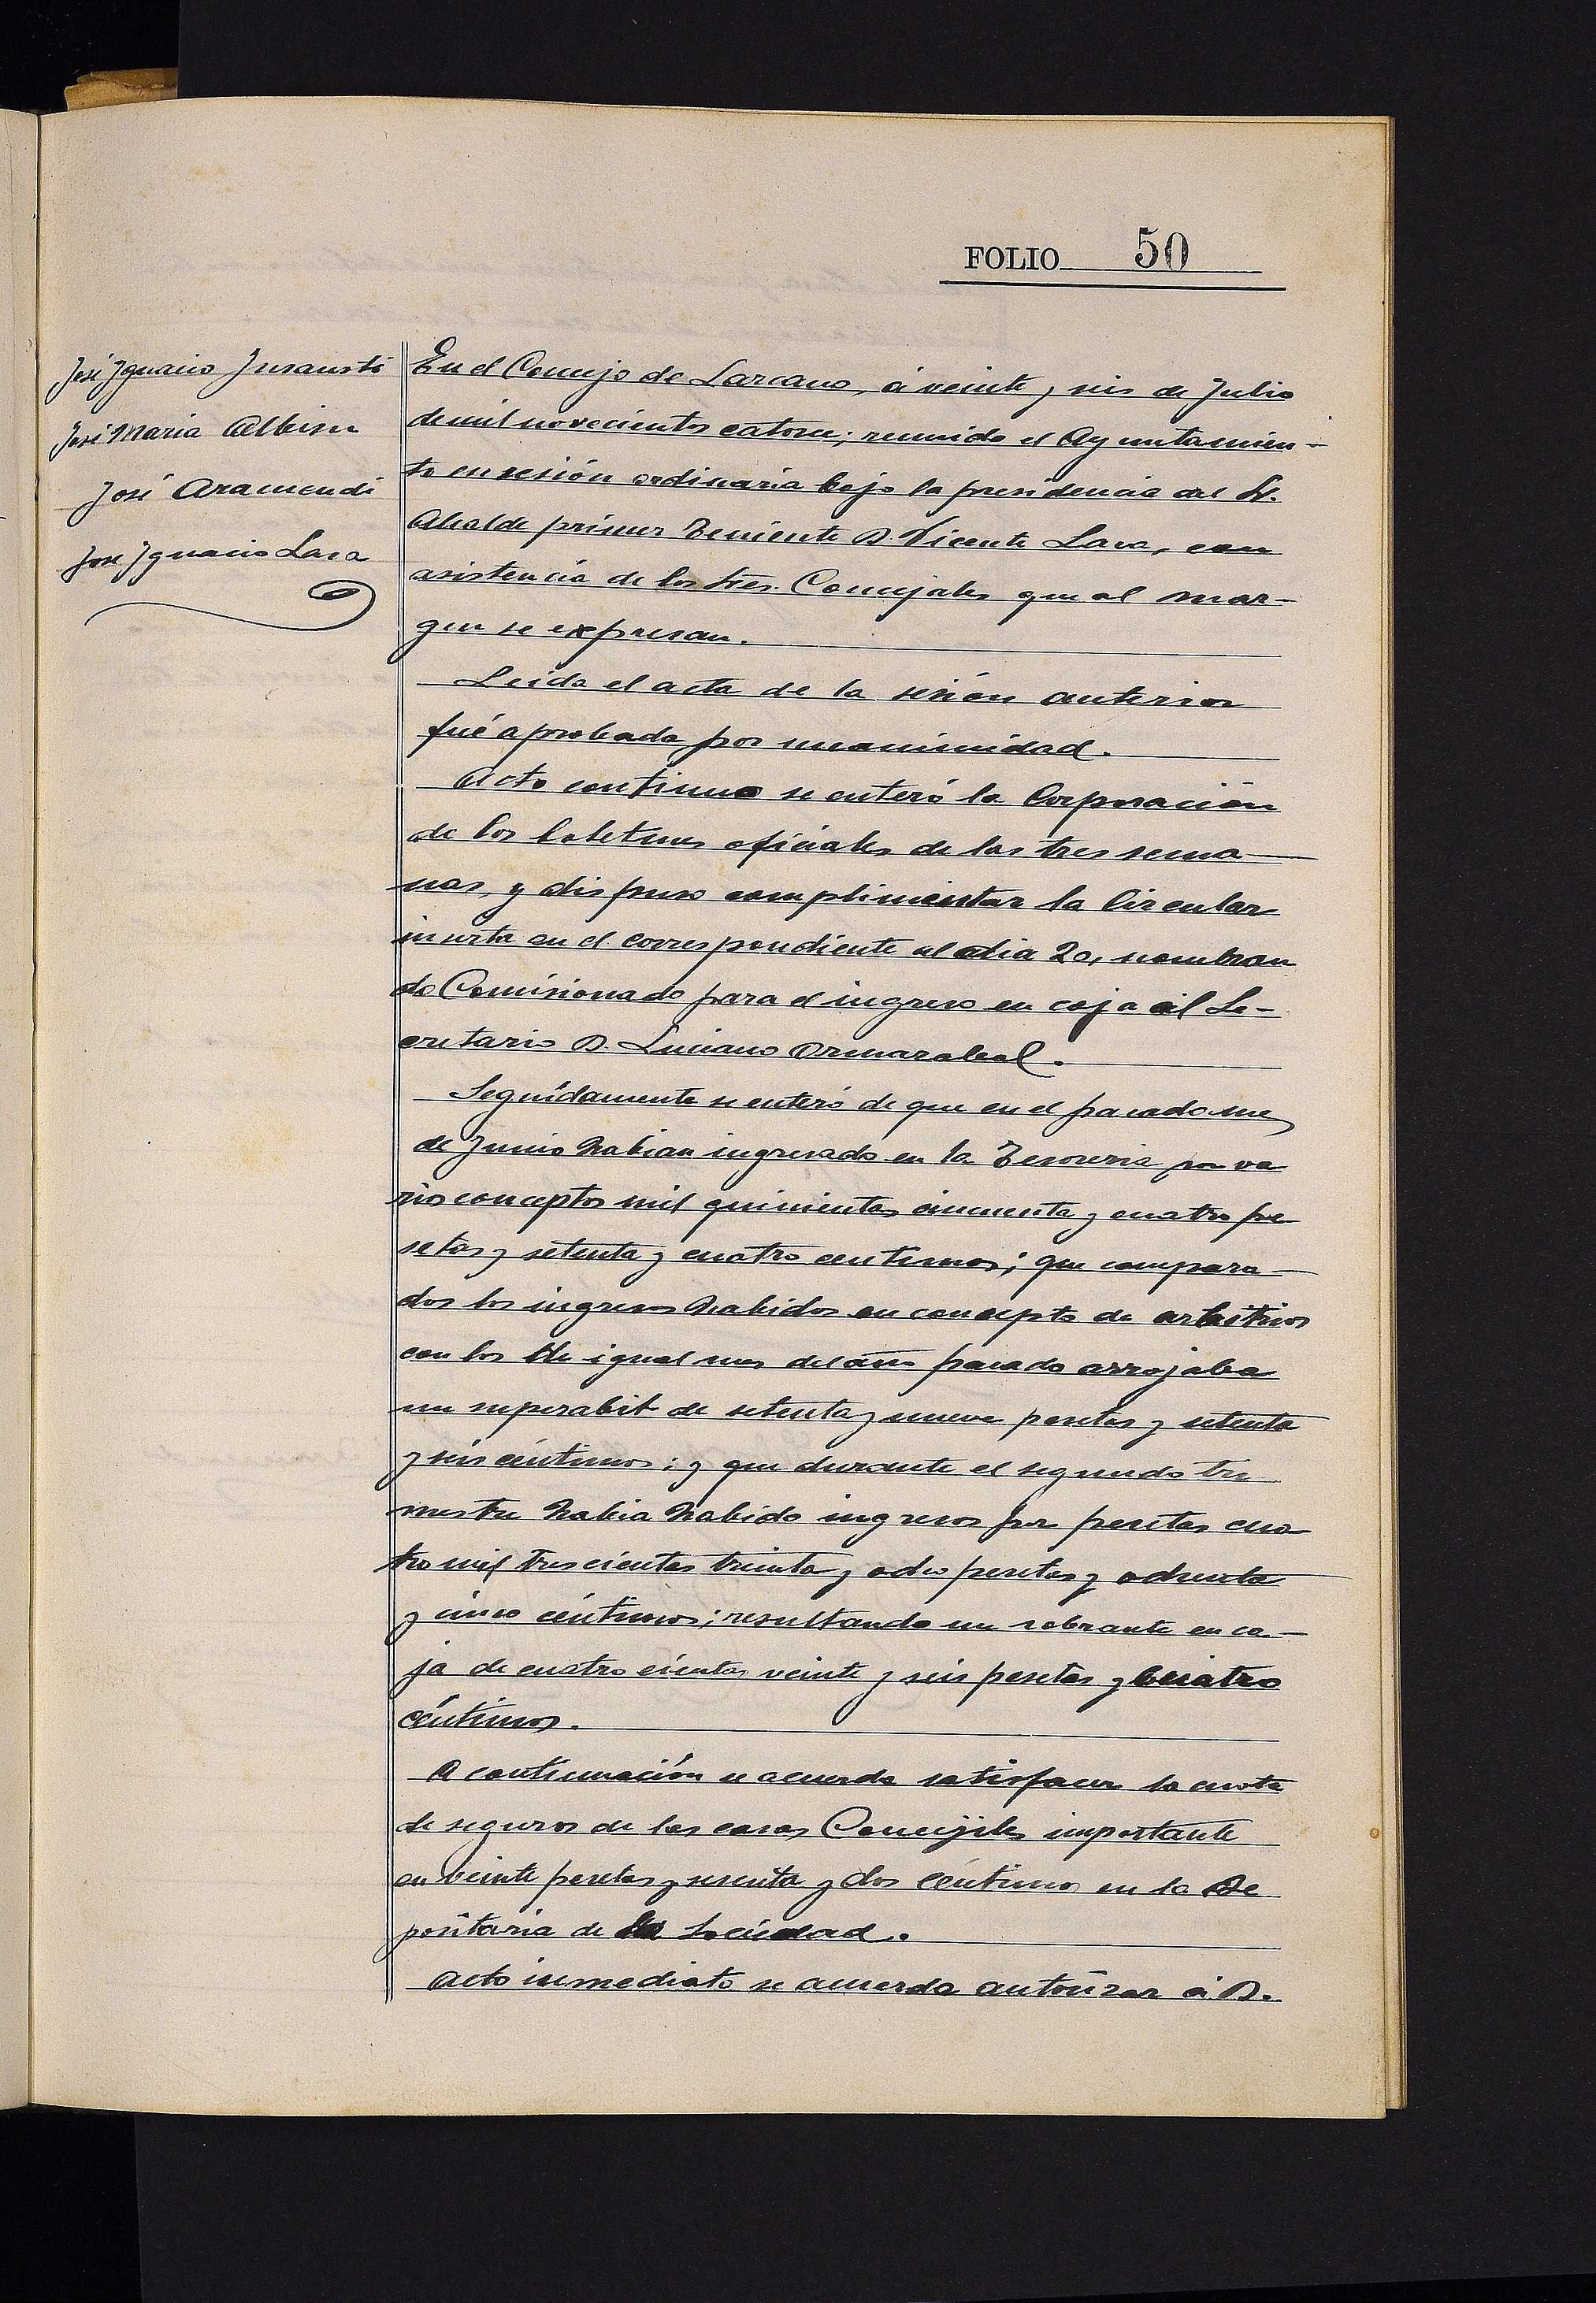 FOLIO 50
José Ignacio Insausti
José Maria Albisu
José Aramendi
José Ignacio Lasa
En el Concejo de Lazcano, á veinte y seis de Julio
de mil novecientos catorce; reunido el Ayuntamien-
to en sesión ordinaria bajo la presidencia del Sr.
Alcalde primer Teniente D. Vicente Lasa, con
asistencia de los Sres. Concejales que al mar-
gen se expresan.
Leida el acta de la sesión anterior
fué aprobada por unanimidad.
Acto continuo se enteró la Corporación
de los boletines oficiales de las tres sema-
nas, y dispuso complimientar la Circular
inserta en el correspondiente al dia 20, nombran
do Comisionado para el ingreso en caja al Se-
cretario D. Luciano Ormazabal.
Seguídamente se enteró de que en el pasado mes
de Junio habian ingresado en la Tesoreria por va
rios conceptos mil quinientas cincuenta y cuatro pe
setas y setenta y cuatro centimos; que compara-
dos los ingresos habidos en concepto de arbitrios
con los de igual mes del año pasado arrojaba
un superabit de setenta y nueve pesetas y setenta
y seis céntimos; y que durante el segundo tri
mestre habia habido ingresos por pesetas cua
tro mil trescientas treinta y ocho pesetas y ochenta
y cinco céntimos; resultando un sobrante en ca-
ja de cuatro cientas veinte y seis pesetas y cuatro
céntimos.
A continuación se acuerda satisfacer la cuota
de seguros de las casas Concejiles importante
en veinte pesetas y sesenta y dos céntimos en la De
positaria de la Sociedad.
Acto inmediato se acuerda autorizar á D.